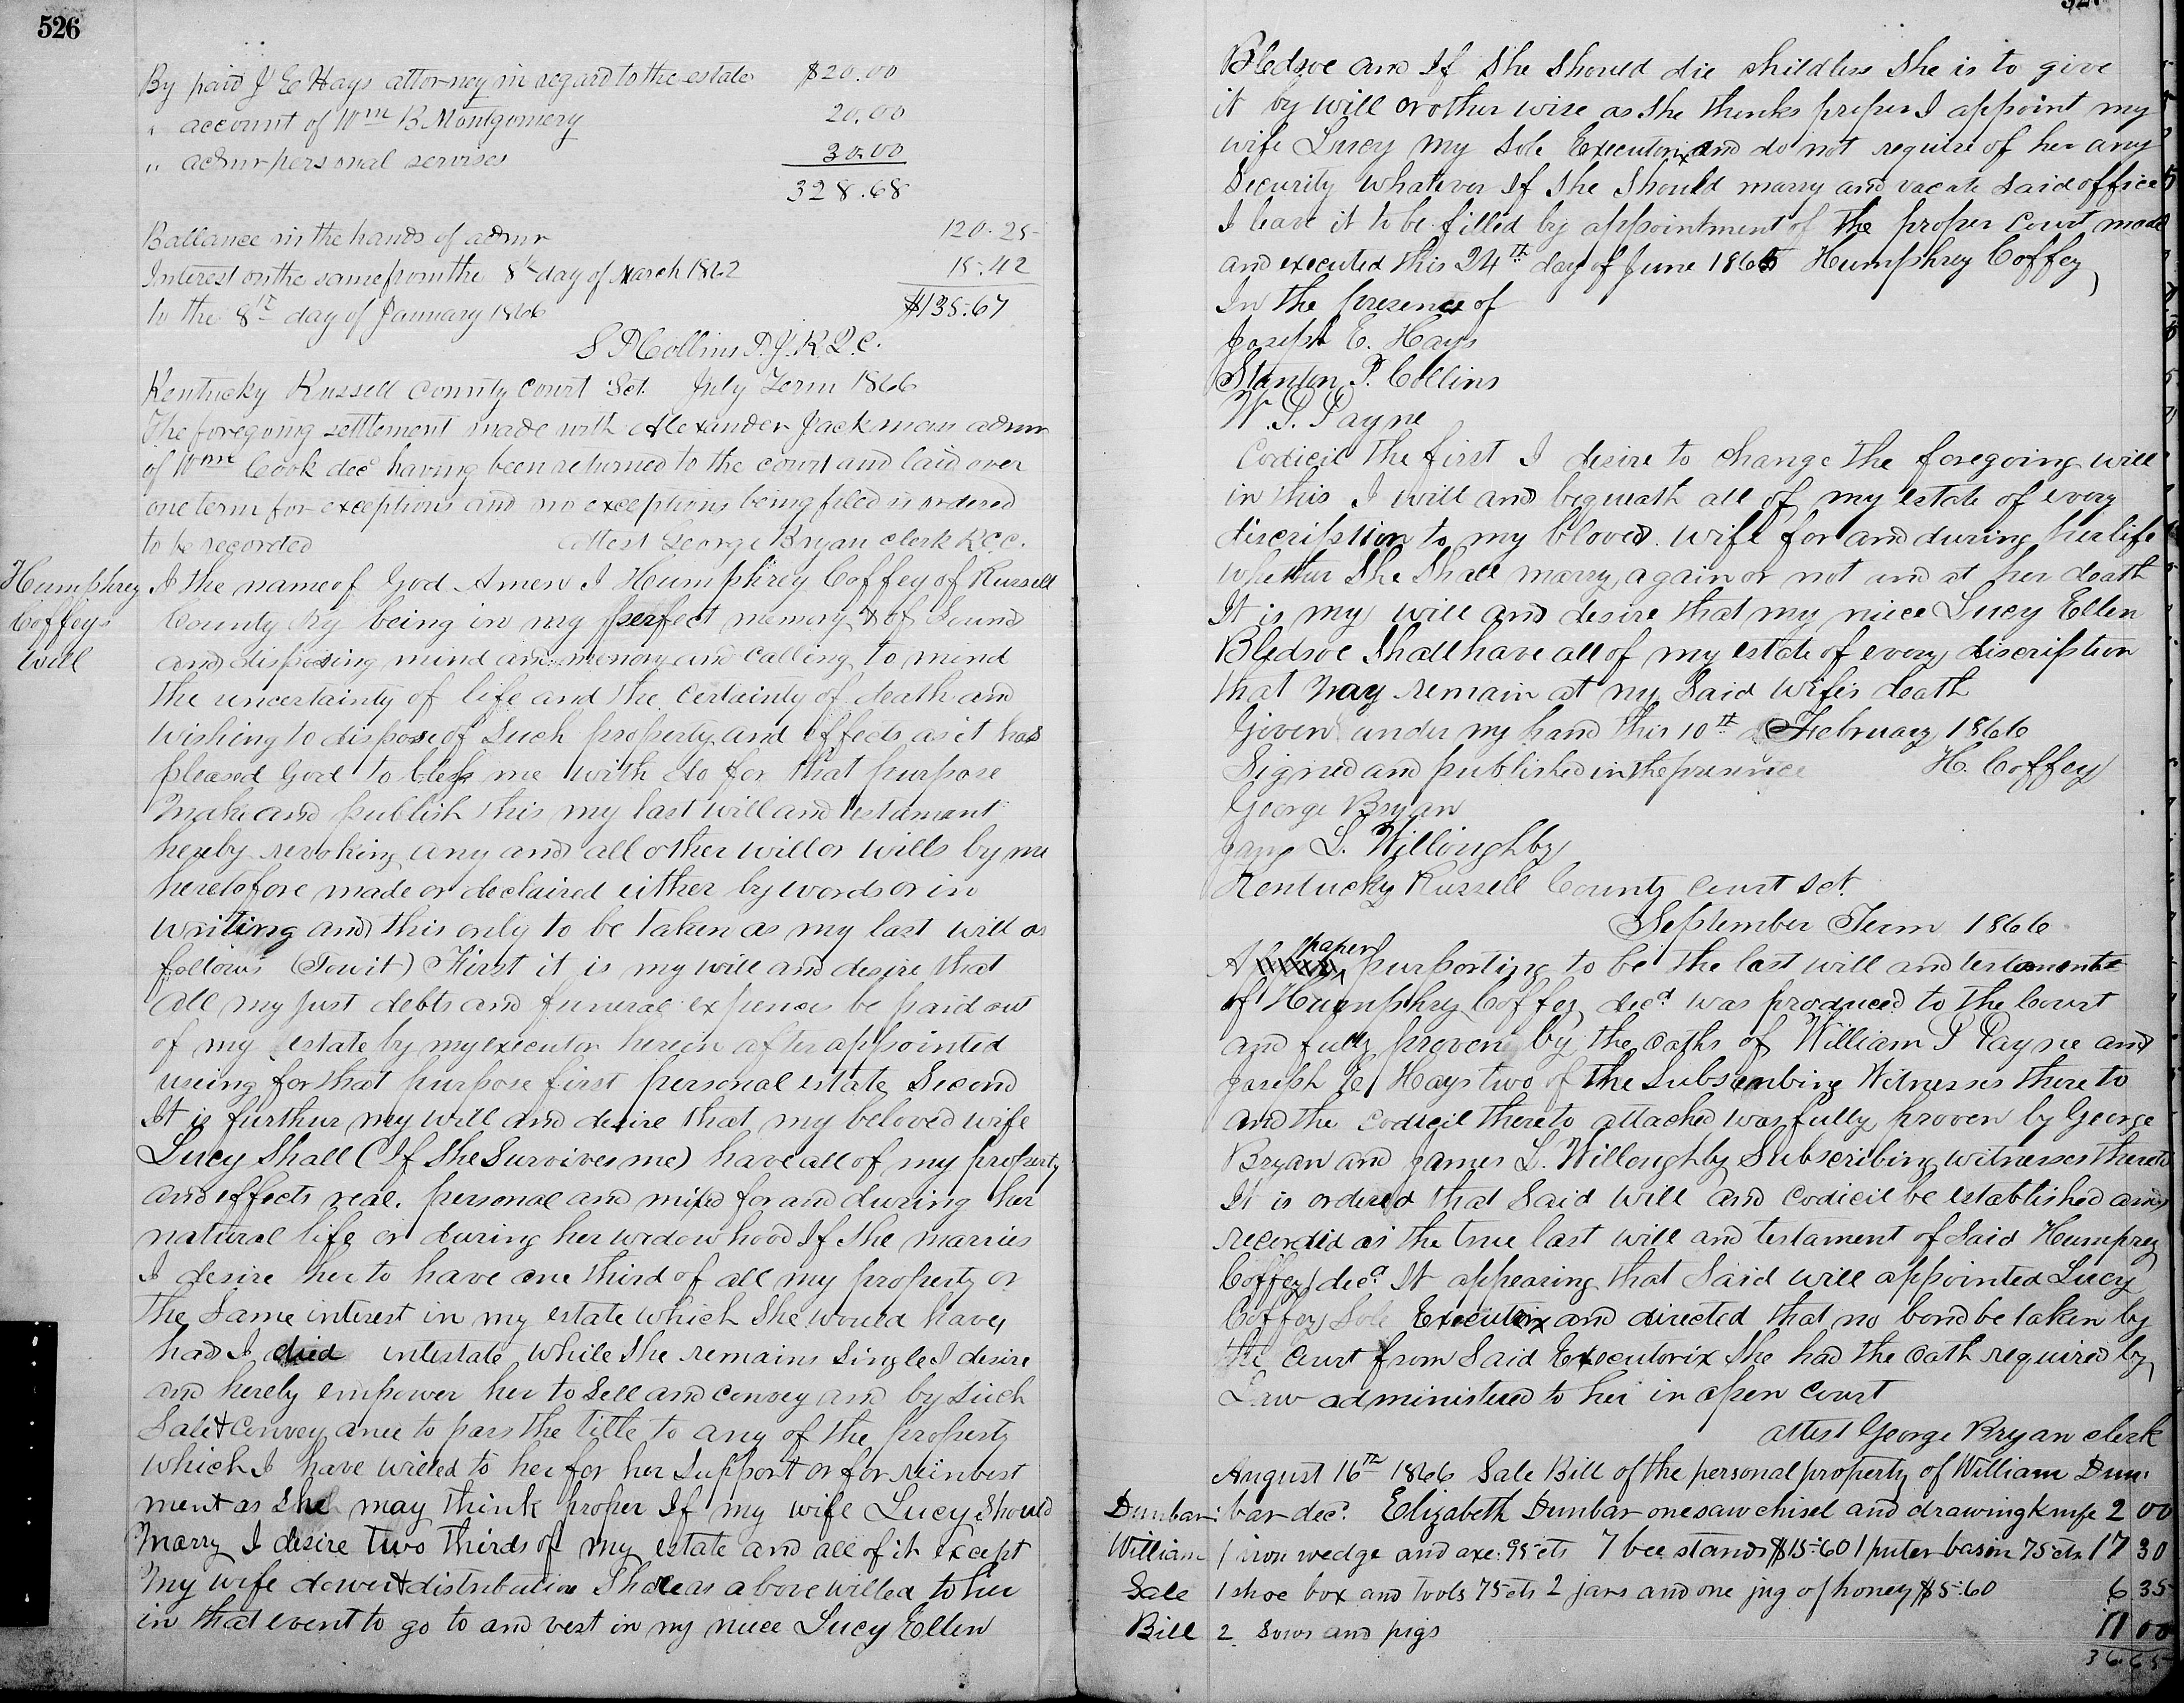 526
By paid J E Hays attorney in regard to the estate $20.00
" account of Wm B Montgomery 20.00
" admr personal servises 30.00
328.68
Ballance in the hands of admr 120.25
Interest on the same from the 8th day of March 1862 15.42
to the 8th day of January 1866 $135.67
S P Collins P.J.R.C.C.
Kentucky Russell County Court Sct. July Term 1866
The foregoing settlement made with Alexander Jackman admr
of Wm Cook decd having been returned to the court and laid over
one term for exceptions and no exceptions being filed is ordered
to be recorded attest George Bryan clerk R.C.C.
Humphrey
Coffeys
Will
I the name of God Amen I Humphrey Coffey of Russell
County Ky being in my perfect memory & of Sound
and disposing mind and memory and calling to mind
the uncertainty of life and the certainty of death and
wishing to dispose of Such property and effects as it has
pleased God to bless me with do for that purpose
make and publish this my last will and testament
hereby revoking any and all other will or wills by me
heretofore made or declaired either by words or in
writing and this only to be taken as my last will as
follows (Towit) First it is my will and desire that
all my just debts and funeral expences be paid out
of my estate by my executor herein after appointed
useing for that purpose first personal estate Second
It is furthur my will and desire that my beloved wife
Lucy Shall (If She Survives me) have all of my property
and effects real. personal and mixed for and during her
natural life or during her widowhood If She marries
I desire her to have one third of all my property or
the Same interest in my estate which She would have,
had I died intestate while She remains Single I desire
and hereby empower her to Sell and convey and by Such
Sale & conveyance to pass the title to any of the property
which I have willed to her for her Support or for reinvest
ment as She may think proper If my wife Lucy Should
Marry I desire two thirds of my estate and all of it except
My wife dower & distributive Share as above willed to her
in that event to go to and vest in my niece Lucy Ellen
Bledsoe and If She Should die childless She is to give
it by will or other wise as She thinks proper I appoint my
wife Lucy my Sole Executorix and do not require of her any
Security whatever If She Should marry and vacate Said office
I leave it to be filled by appointment of the proper Court made
and executed this 24th day of June 1865 Humphrey Coffey
In the presence of
Joseph E. Hays
Stanton P. Collins
W. P. Payne
Codicil the first I desire to change the foregoing will
in this I will and bequeath all of my estate of every
discription to my bloved wife for and during her life
whether She Shall marry again or not and at her death
It is my will and desire that my niece Lucy Ellen
Bledsoe Shall have all of my estate of every discription
that may remain at my Said wifes death
Given under my hand this 10th February 1866
Signed and published in the presence H. Coffey
George Bryan
James L. Willoughby
Kentucky Russell County Court Sct.
September Term 1866
A paper purporting to be the last will and testement
of Humphrey Coffey decd was produced to the Court
and fully proven by the oaths of William P Payne and
Joseph E Hays two of the Subscribing Witnesses thereto
and the codicil thereto attached was fully proven by George
Bryan and James L. Willoughby Subscribing witnesses thereto
It is ordered that Said will and codicil be established and
recorded as the true last will and testament of Said Humprey
Coffey decd It appearing that Said will appointed Lucy
Coffey Sole Executrix and directed that no bond be taken by
the Court from Said Executorix She had the oath required by
Law administered to her in open court
attest George Bryan clerk
August 16th 1866 Sale Bill of the personal property of William Dun-
Dunbar bar decd. Elizabeth Dunbar one saw chisel and drawing knife 2 00
William 1 iron wedge and axe 95 cts 7 bee stands $15.60 1 puter basin 75 cts 17 30
Sale 1 shoe box and tools 75 cts 2 jars and one jug of honey $5.60 6 35
Bill 2 Sows and pigs 11 00
36.65